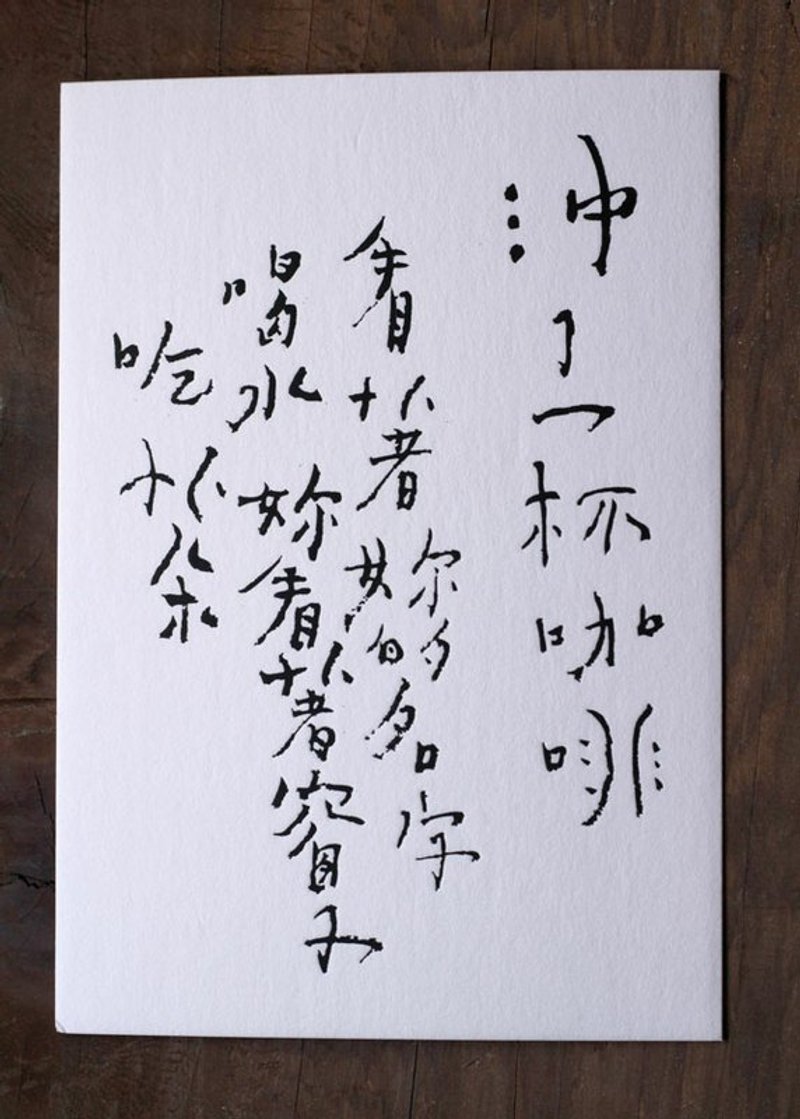 沖了一杯咖啡
看著妳的名字
喝水 妳看著窗子
吃茶